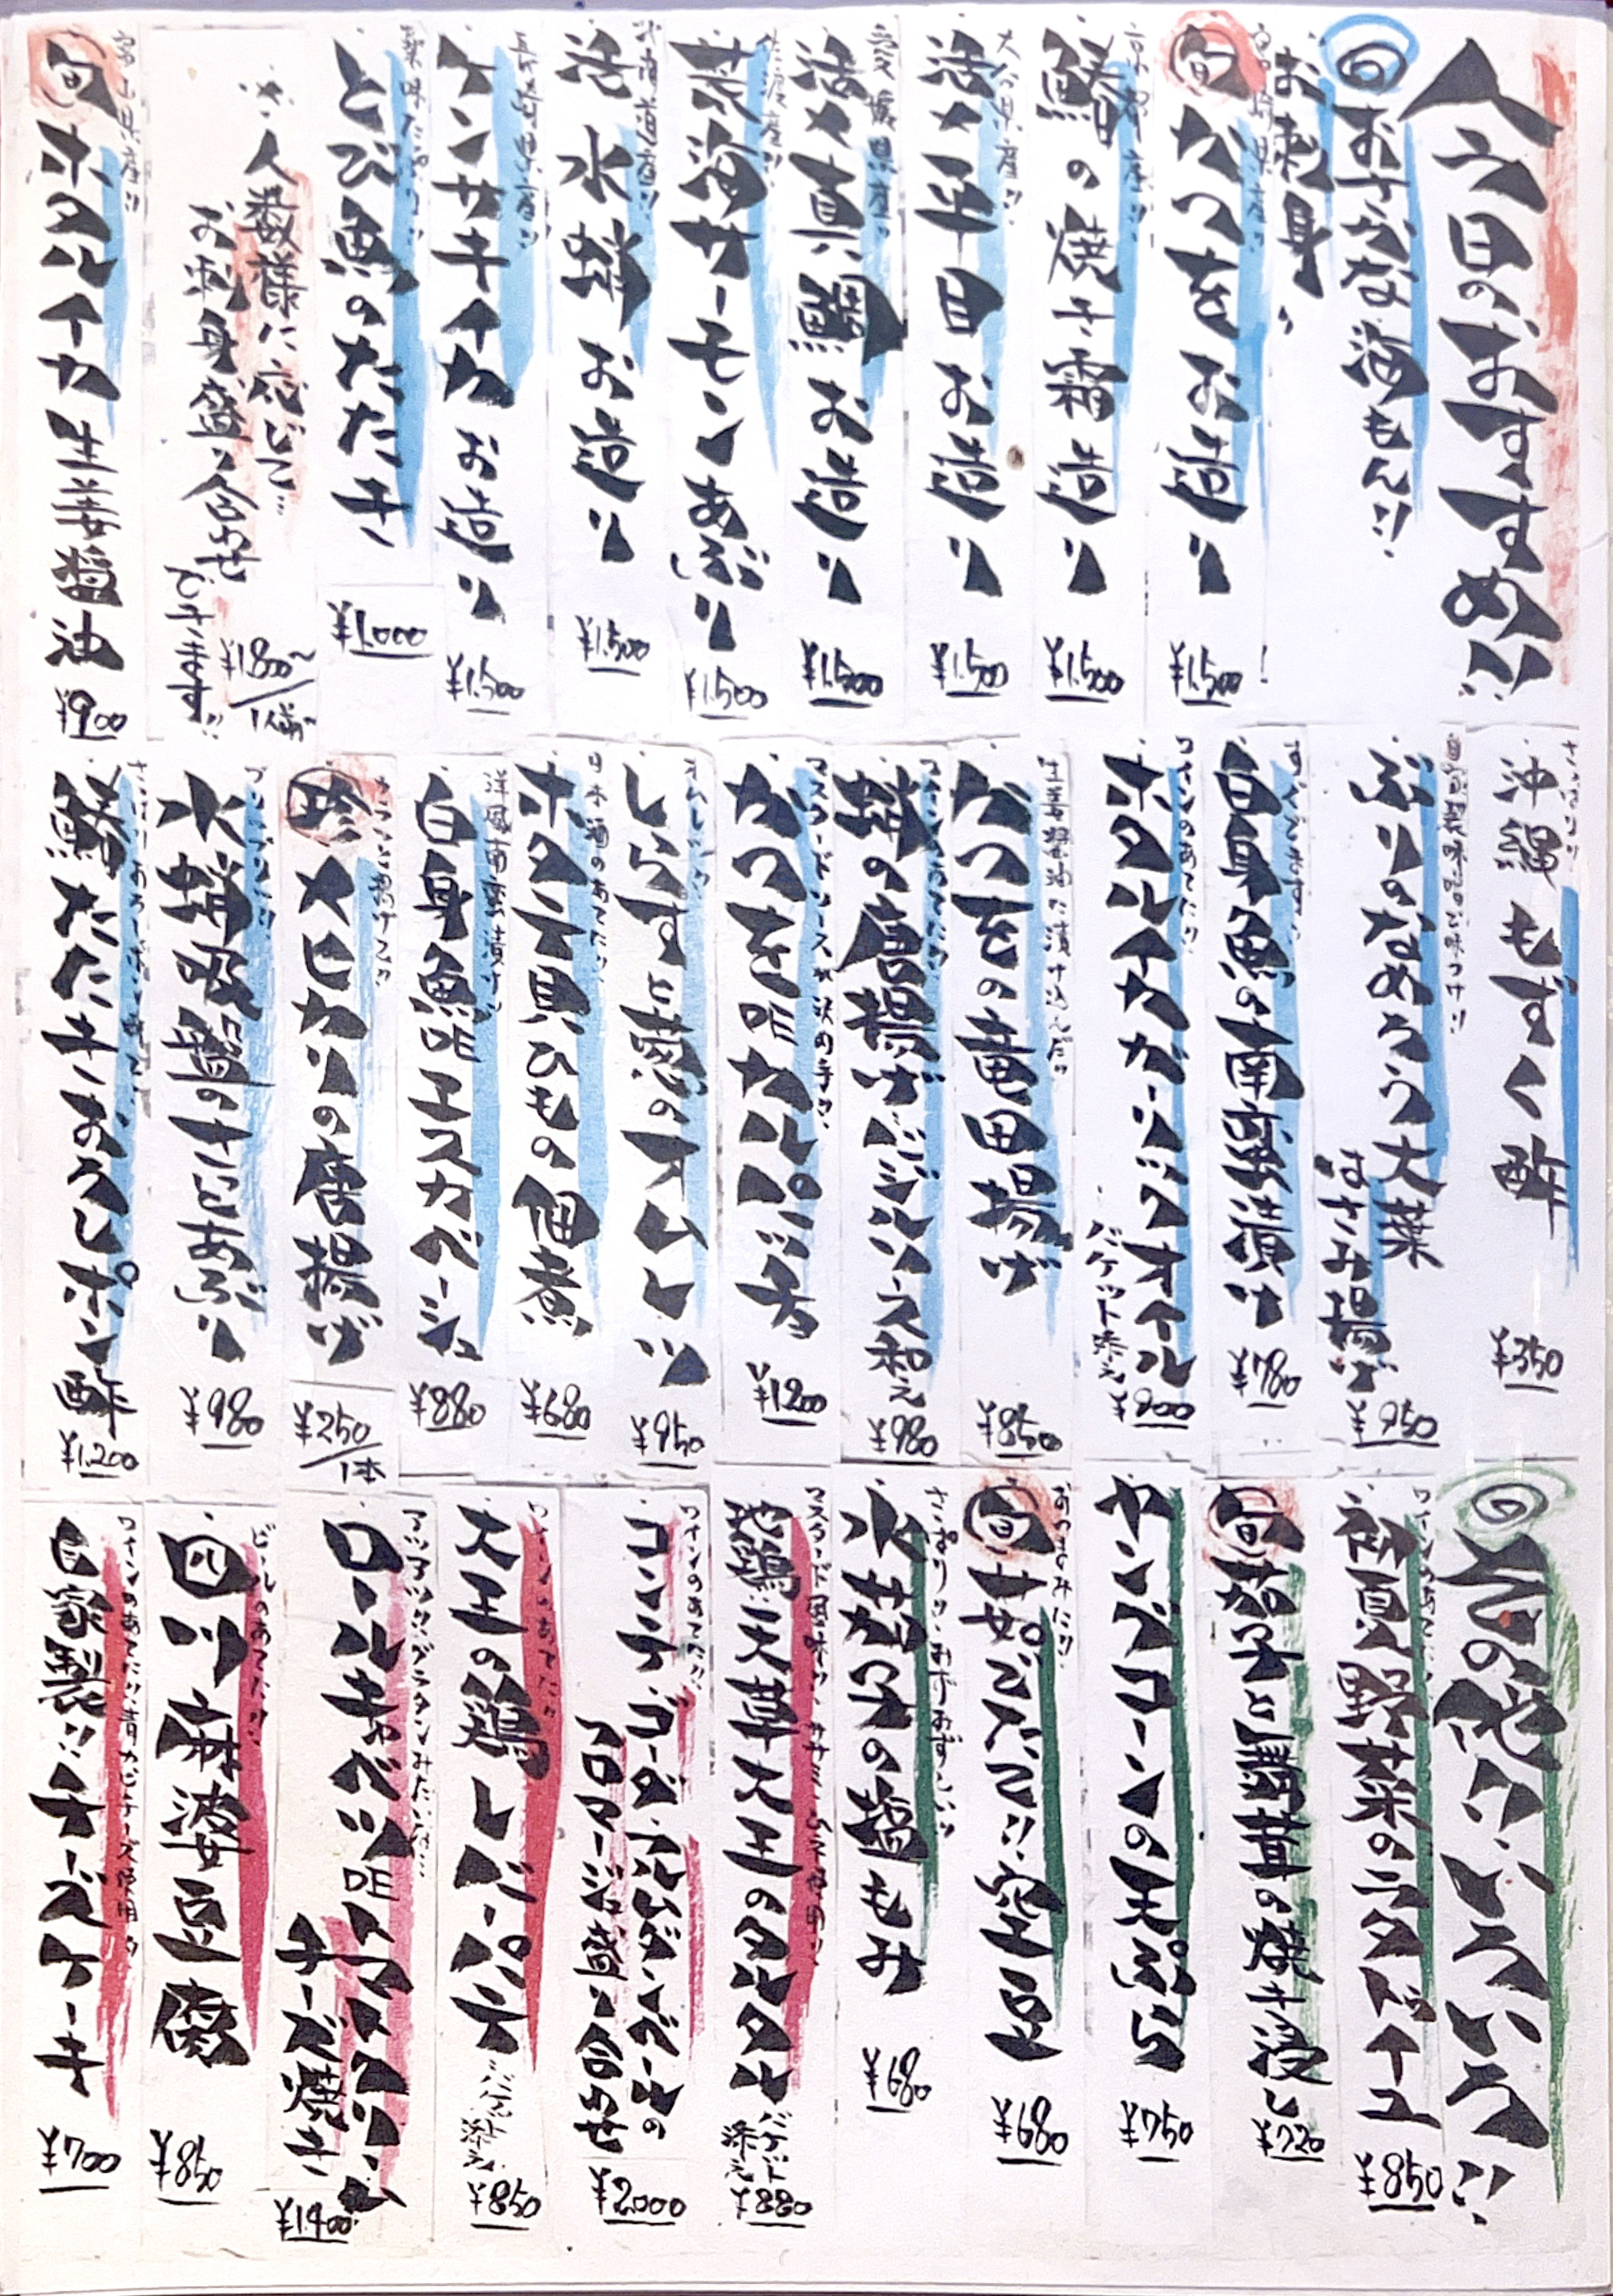 今日のおすすめ!!
おさかな海もん!!
お刺身
宮崎県産!!
旬 かつを お造り ¥1,500
京都産!!
鰆の焼き霜造り ¥1,500
大分県産!!
活〆平目 お造り ¥1,500
愛媛県産!!
活〆真鯛 お造り ¥1,500
佐渡産!!
荒海サーモン あぶり ¥1,500
北海道産!!
活 水蛸 お造り ¥1,500
長崎県産!!
ケンサキイカ お造り ¥1,500
薬味たっぷり!!
とび魚のたたき ¥1,000
人数様に応じて…
お刺身盛り合わせ
できます!! ¥1,800〜/1人前
富山県産!!
旬 ホタルイカ 生姜醤油 ¥900
さっぱり!!
沖縄 もずく酢 ¥350
自家製味噌で味つけ!!
ぶりのなめろう大葉
はさみ揚げ ¥950
白身魚の南蛮漬け ¥780
ワインのあてに!!
ホタルイカガーリックオイル
バケット添え ¥900
生姜醤油に漬け込んだ!!
かつをの竜田揚げ ¥850
ワインのあてに!!
蛸の唐揚げバジルソース和え ¥980
マスタードソースが決め手!!
かつをDEカルパッチョ ¥1,200
しらすと葱のオムレツ ¥950
日本酒のあてに!!
ホタテ貝ひもの佃煮 ¥680
洋風南蛮漬け!!
白身魚DEエスカベーシュ ¥880
カラッと揚げて!!
珍 メヒカリの唐揚げ ¥250/1本
水蛸吸盤のさっとあぶり ¥980
鰆たたきおろしポン酢 ¥1,200
その他いろいろ!!
ワインのあてに!!
初夏野菜のラタトゥイユ ¥850
旬 茄子と翡翠の焼き浸し ¥720
ヤングコーンの天ぷら ¥750
おつまみに!!
旬 茹でたて!! 空豆 ¥680
水茄子の塩もみ ¥680
地鶏 天草大王のタルタル
バケット添え ¥880
ワインのあてに!!
コンテ ゴーダ カルダンベールの
フロマージュ盛り合わせ ¥2,000
ワインのあてに!!
大王の鶏レバーパテ
バケット添え ¥850
アツアツグラタンみたいな…
ロールキャベツDEトマトクリーム
チーズ焼き ¥1,400
ビールのあてに!!
四川 麻婆豆腐 ¥850
ワインのあてに!!青カビチーズ使用!!
自家製!!チーズケーキ ¥700